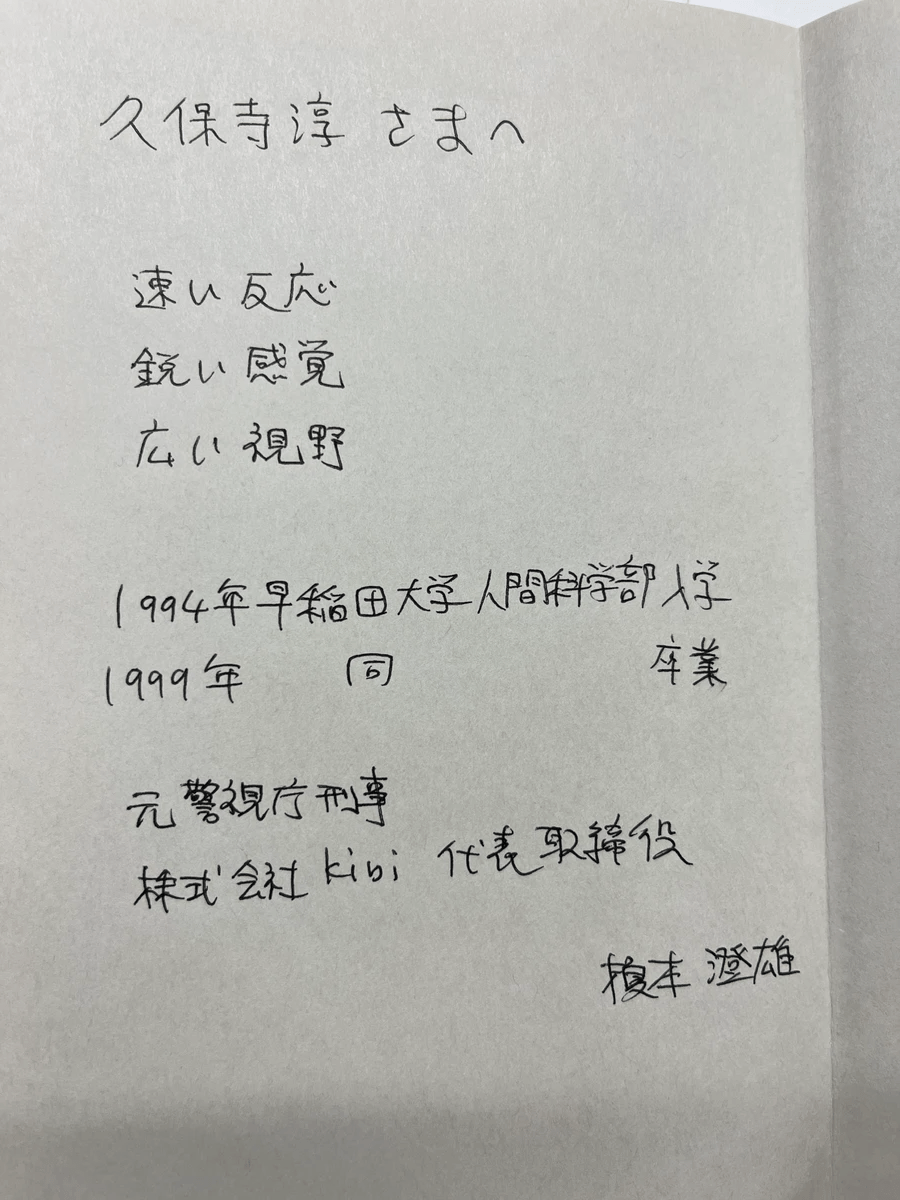 久保寺淳 さまへ
速い反応
鋭い感覚
広い視野
1994年早稲田大学人間科学部入学
1999年 同 卒業
元警視庁刑事
株式会社kibi 代表取締役
榎本 澄雄